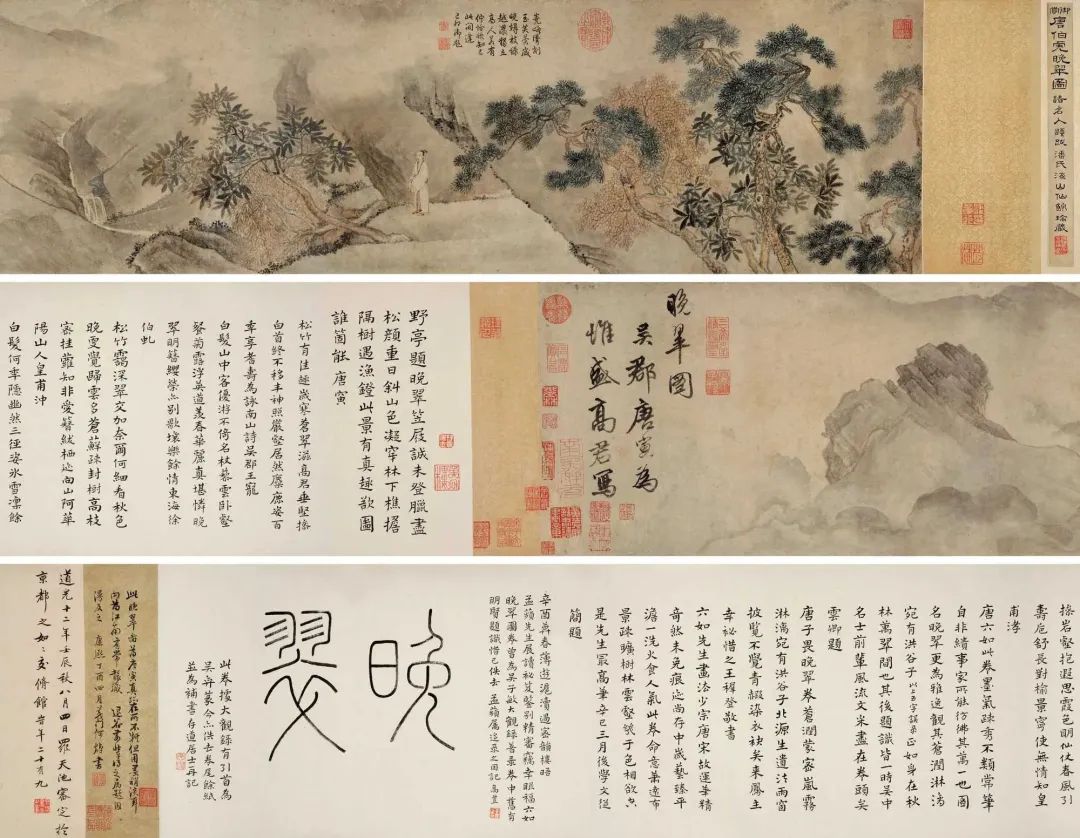 御題唐伯虎晚翠圖
諸名人題跋潘氏海山仙館珍藏
玉芙蓉歲
越濃獨立
高人若有
此間逢
己卯御題
晚翠圖
吳郡唐寅為
惟盛高君寫
野亭題晚翠笠屐誠未登臘盡
松顏重日斜山色凝穿林下樵擔
隔樹遇漁鐙此景有真趣欲圖
誰箇能 唐寅
松竹有佳趣歲寒蒼翠滋高君垂堅操
白首終不移丰神照嚴壑居然麋鹿姿百
年享耆壽為詠南山詩吳郡王寵
白髮山中客優游不倚名杖藜雲臥壑
餐菊露浮英道羨春華麗真堪憐晚
翠明簪纓榮亦別歌壞樂餘情東海徐
伯虬
松竹靄深翠交加奈爾何細看秋色
晚更覺歸雲多蒼蘚疎封樹高枝
密挂蘿知非愛簪紱栖迹向山阿華
陽山人皇甫沖
白髮何年隱幽然三徑姿氷雪凜餘
操岩壑抱遐思霞色明仙仗春風引
壽巵舒長對榆景寧使無情知皇
甫涍
唐六如此卷墨氣疎秀不類常筆
自非績事家所能彷彿其萬一也圖
名晚翠更為雅逸觀其蒼潤淋漓
宛有洪谷子以上五字誤衍正如身在秋
林萬翠間也其後題識皆一時吳中
名士前輩風流文采盡在卷頭矣
雲卿題
唐子畏晚翠卷蒼潤蒙蒙嵐霧
淋漓宛有洪谷子北源生遺法雨窗
披覽不覺青靄染衣袂矣來鳳主
幸祕惜之王穉登敬書
六如先生畫法少宗唐宋故運筆精
奇然未免痕迹尚存中歲藝臻平
澹一洗火食人氣此卷命意蕭遠布
景疎曠樹林雲壑虢于色相欲亦
是先生最高筆辛巳三月後學文從
簡題
辛酉
孟蘋先生展讀祕笈鑒別精審竊幸眼福六如
晚翠圖卷曾為吳子敏大觀錄著录卷中舊有
明賢題識惜已佚去孟蘋屬追录之因記
晚翠
此卷據大觀錄有引首為
吳奕篆今亦佚去卷尾餘紙
並為補書存道居士再記
道光十二年壬辰秋八月四日羅天池審定於
京都